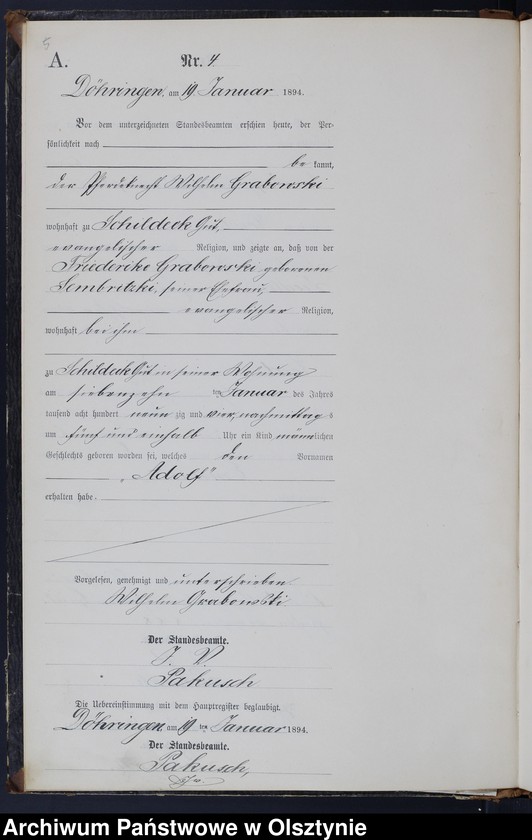 5
A.
Nr. 4.
Döhringen, am 19 Januar 1894.
Vor dem unterzeichneten Standesbeamten erschien heute, der Per-
sönlichkeit nach
be kannt,
der Pferdeknecht Wilhelm Grabowski
wohnhaft zu Schildeck Gut,
evangelischer Religion, und zeigte an, daß von der
Friederike Grabowski geborenen
Sembritzki, seiner Ehefrau,
evangelischer Religion,
wohnhaft bei ihm
zu Schildeck Gut in seiner Wohnung
am siebenzehn ten Januar des Jahres
tausend acht hundert neun zig und vier, nachmittags
um fünf und einhalb Uhr ein Kind männlichen
Geschlechts geboren worden sei, welches den Vornamen
„Adolf“
erhalten habe.
Vorgelesen, genehmigt und unterschrieben
Wilhelm Grabowski
Der Standesbeamte.
J. V.
Pakusch
Die Uebereinstimmung mit dem Hauptregister beglaubigt.
Döhringen, am 19 ten Januar 1894.
Der Standesbeamte.
Pakusch,
Archiwum Państwowe w Olsztynie